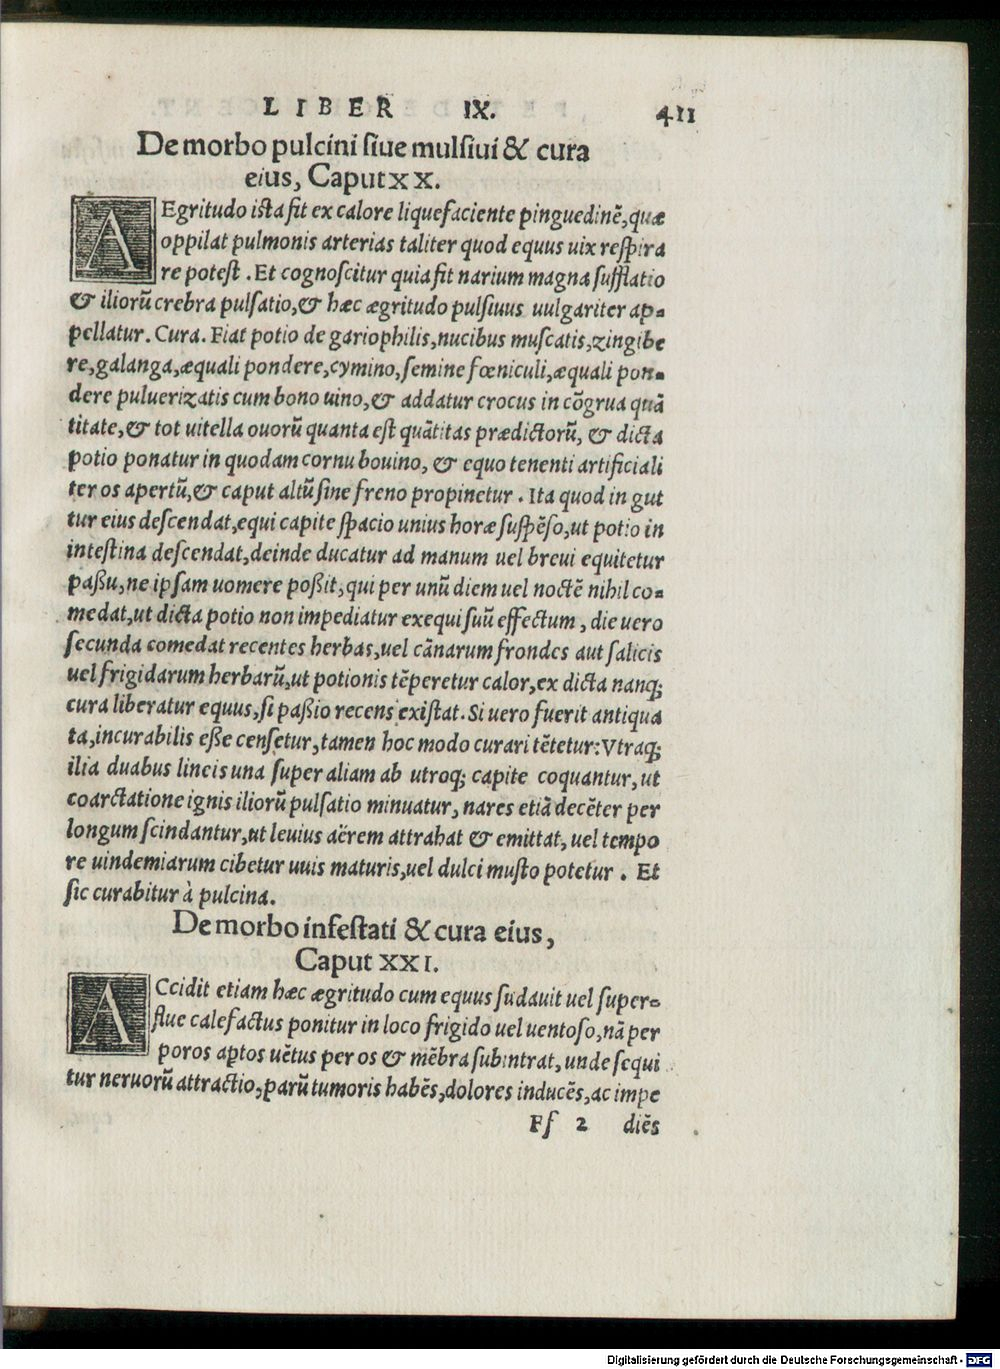 LIBER IX. 411
De morbo pulcini ſiue mulſiui & cura
eius, Caput XX.
AEgritudo iſta fit ex calore liquefaciente pinguedinē, quæ
oppilat pulmonis arterias taliter quod equus uix reſpira
re poteſt . Et cognoſcitur quia fit narium magna ſufflatio
& iliorū crebra pulſatio, & hæc ægritudo pulſiuus uulgariter ap-
pellatur. Cura. Fiat potio de gariophilis, nucibus muſcatis, zingibe
re, galanga, æquali pondere, cymino, ſemine fœniculi, æquali pon-
dere puluerizatis cum bono uino, & addatur crocus in cōgrua quā
titate, & tot uitella ouorū quanta eſt quātitas prædictorū, & dicta
potio ponatur in quodam cornu bouino, & equo tenenti artificiali
ter os apertū, & caput altū ſine freno propinetur . Ita quod in gut
tur eius deſcendat, equi capite ſpacio unius horæ ſuſpēſo, ut potio in
inteſtina deſcendat, deinde ducatur ad manum uel breui equitetur
paßu, ne ipſam uomere poßit, qui per unū diem uel noctē nihil co-
medat, ut dicta potio non impediatur exequi ſuū effectum, die uero
ſecunda comedat recentes herbas, uel cānarum frondes aut ſalicis
uel frigidarum herbarū, ut potionis tēperetur calor, ex dicta nanq;
cura liberatur equus, ſi paßio recens exiſtat. Si uero fuerit antiqua
ta, incurabilis eße cenſetur, tamen hoc modo curari tētetur: Vtraq;
ilia duabus lineis una ſuper aliam ab utroq; capite coquantur, ut
coarctatione ignis iliorū pulſatio minuatur, nares etiā decēter per
longum ſcindantur, ut leuius aërem attrahat & emittat, uel tempo
re uindemiarum cibetur uuis maturis, uel dulci muſto potetur . Et
ſic curabitur à pulcina.
De morbo infeſtati & cura eius,
Caput XXI.
ACcidit etiam hæc ægritudo cum equus ſudauit uel ſuper-
flue calefactus ponitur in loco frigido uel uentoſo, nā per
poros aptos uētus per os & mēbra ſubintrat, unde ſequi
tur neruorū attractio, parū tumoris habēs, dolores inducēs, ac impe
Ff 2 diēs
Digitalisierung gefördert durch die Deutsche Forschungsgemeinschaft - DFG